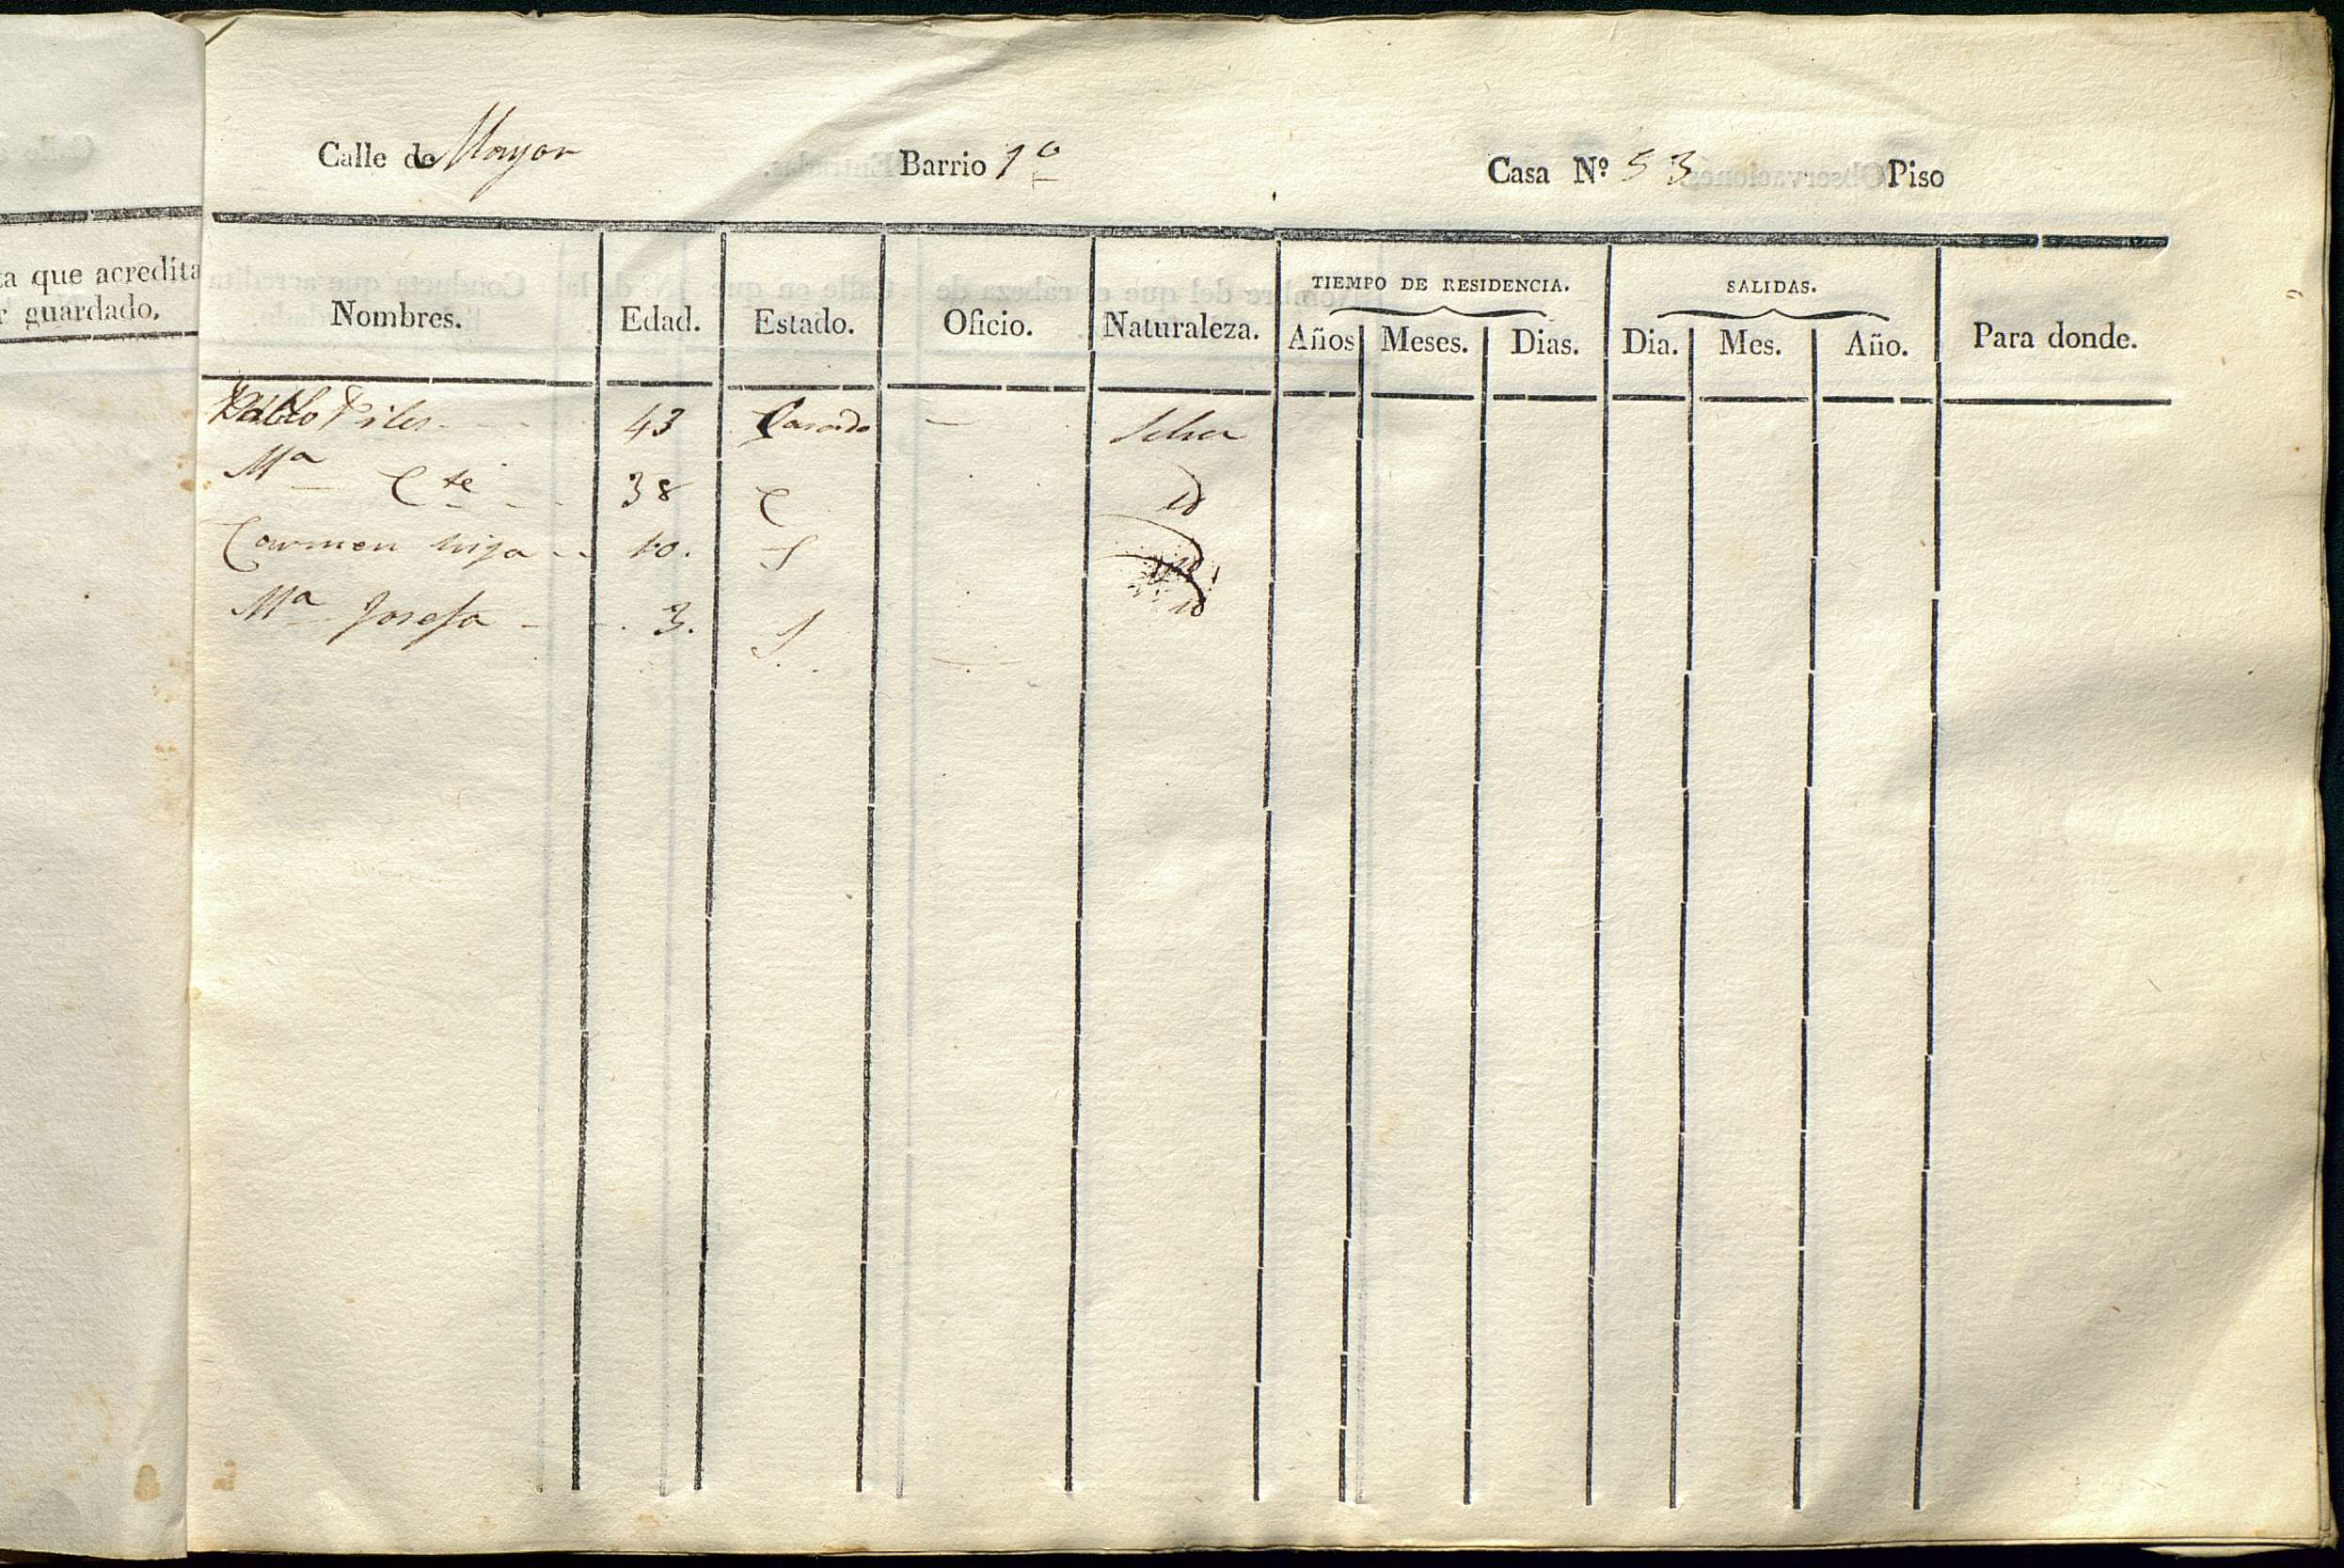 ta que acredita
r guardado.
Calle de Mayor Barrio 1º Casa Nº 53 Piso
TIEMPO DE RESIDENCIA. SALIDAS.
Nombres. Edad. Estado. Oficio. Naturaleza. Años Meses. Dias. Dia. Mes. Año. Para donde.
Pablo Piles 43 Casado —
Mª 38 C id
Carmen hija 10. S
Mª Josefa 3. S id